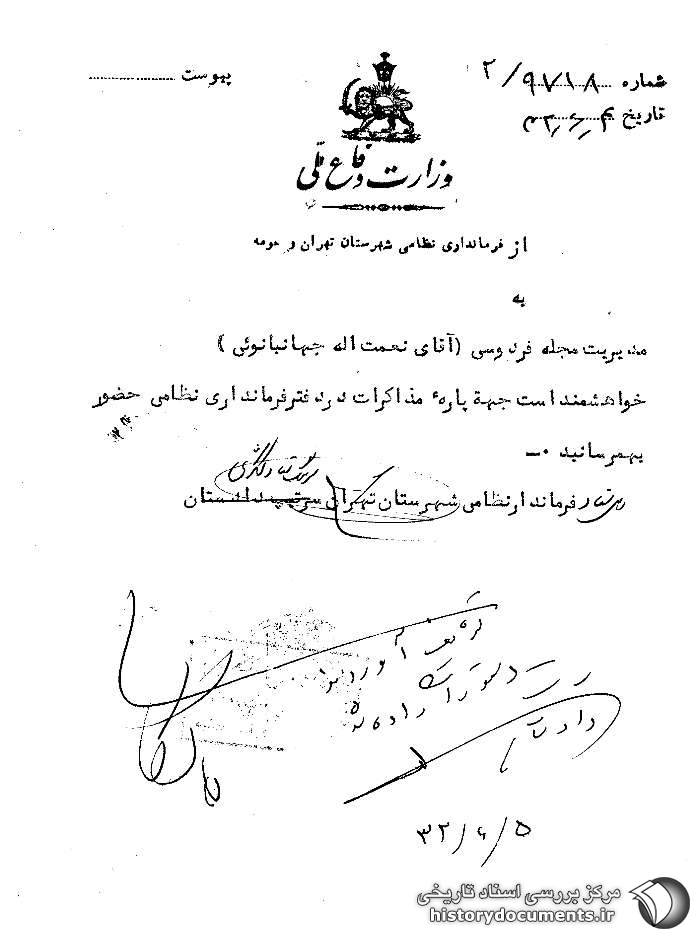 شماره ۲/۹۷۱۸
پیوست
تاریخ
وزارت دفاع ملی
از فرمانداری نظامی شهرستان تهران و حومه
به
مدیریت مجله فردوسی (آقای نعمت اله جهانبانوئی)
خواهشمند است جهة پاره مذاکرات در دفتر فرمانداری نظامی حضور
بهمرسانید ۰-
فرماندار نظامی شهرستان تهران سرتیپ دادستان
تشریف آوردند
دستورات داده شد
۳۲/۶/۵
مرکز بررسی اسناد تاریخی
historydocuments.ir